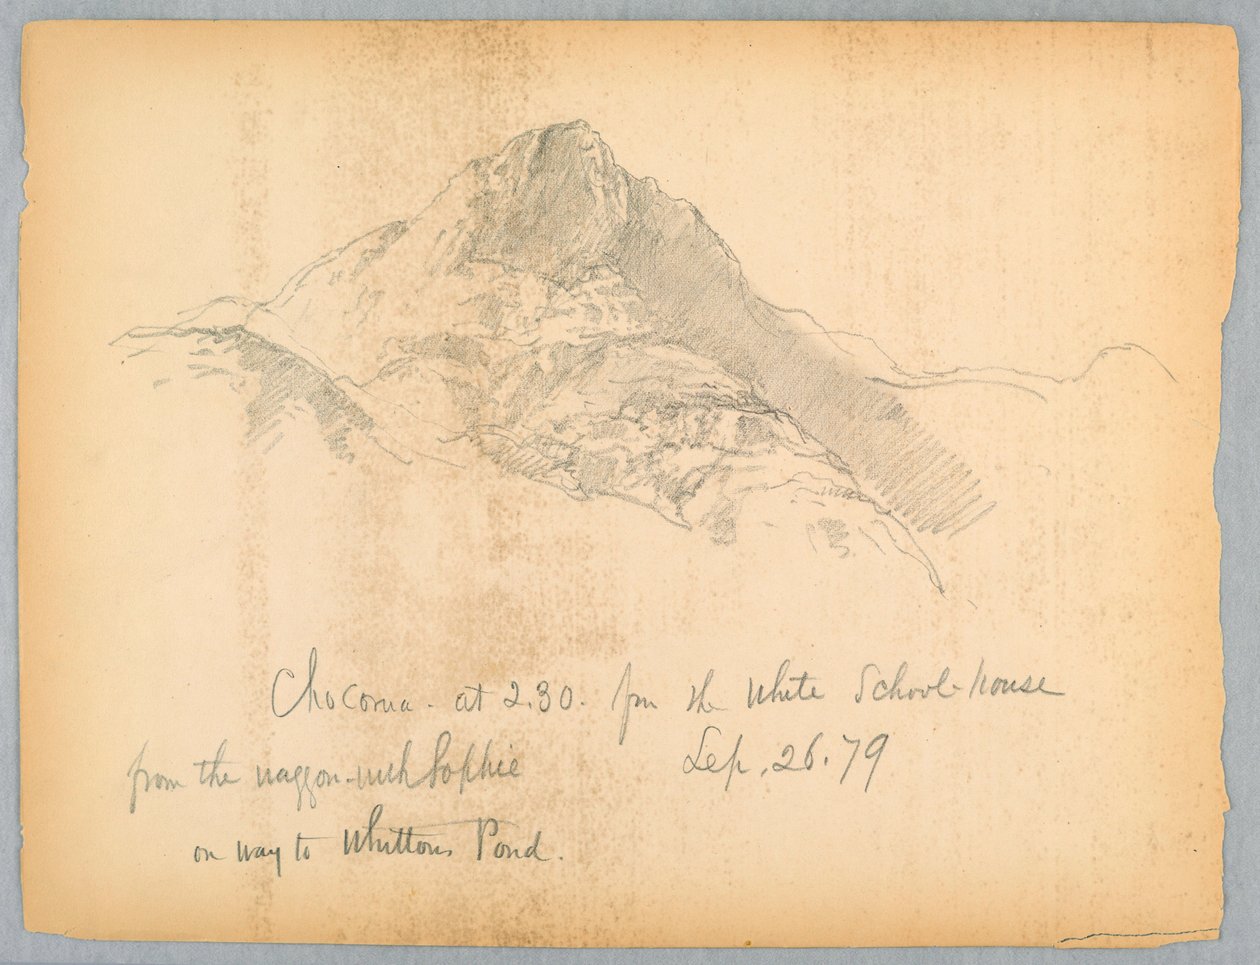 Chocorua - at 2.30. frm the White School-house
Sep. 26. 79
from the waggon - with Sophie
on way to Whittons Pond.